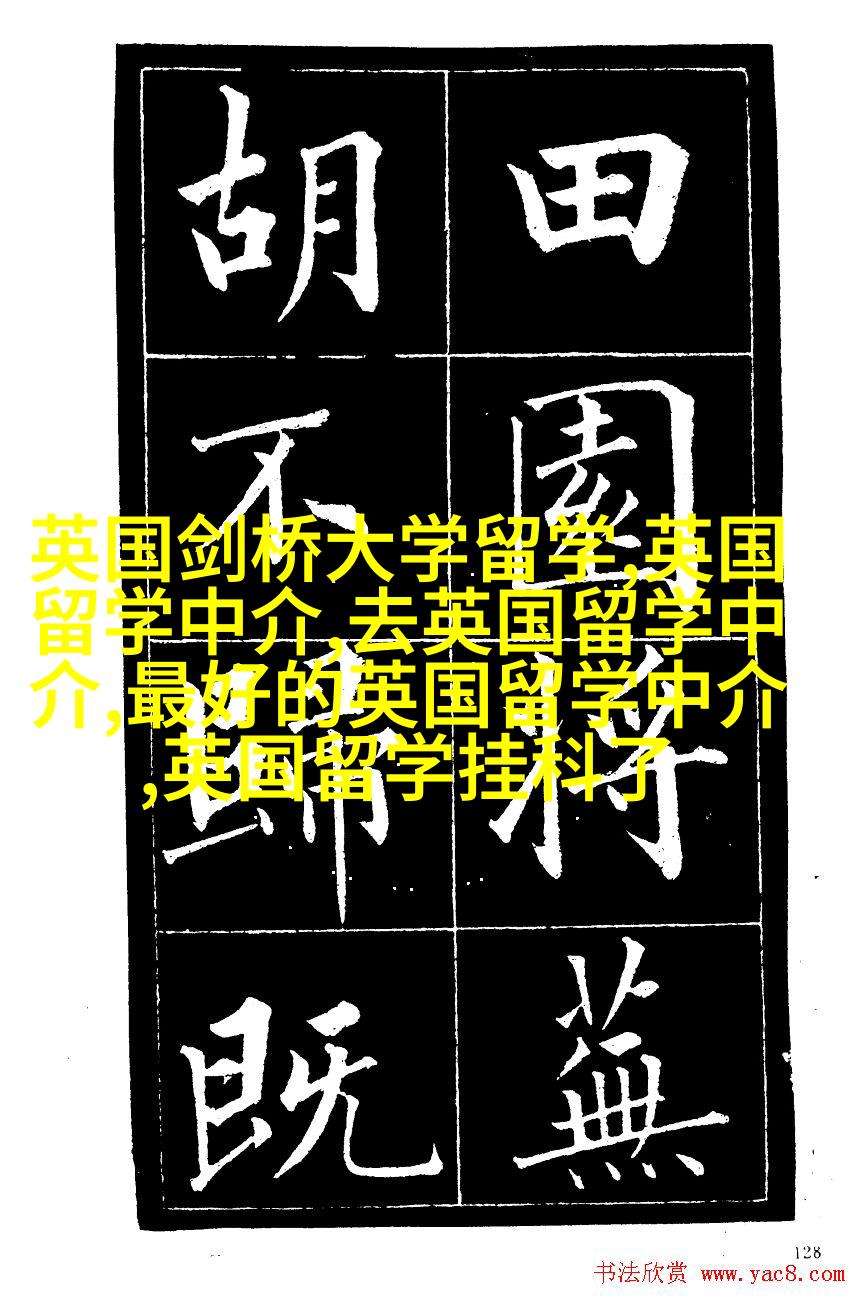 田園將蕪
胡不歸既
英国剑桥大学留学,英国
留学中介,去英国留学中
介,最好的英国留学中介
,英国留学挂科了
128
书法欣赏 www.yac8.com